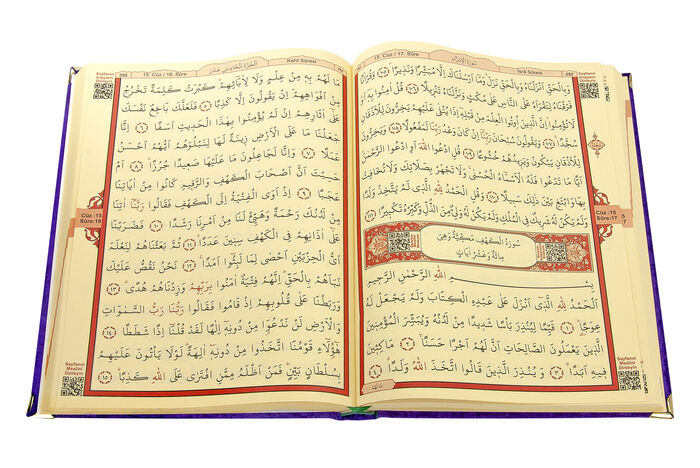 292
15. Cüz / 17. Sûre
سُورَةُ الْإِسْرَاءِ
İsrâ Sûresi
وَبِالْحَقِّ اَنْزَلْنَاهُ وَبِالْحَقِّ نَزَلَ وَمَا اَرْسَلْنَاكَ اِلَّا مُبَشِّرًا وَنَذِيرًا ﴿١٠٥﴾ وَقُرْاٰنًا
فَرَقْنَاهُ لِتَقْرَاَهُ عَلَى النَّاسِ عَلٰى مُكْثٍ وَنَزَّلْنَاهُ تَنْزِيلًا ﴿١٠٦﴾ قُلْ اٰمِنُوا بِهِ
اَوْ لَا تُؤْمِنُوا اِنَّ الَّذِينَ اُوتُوا الْعِلْمَ مِنْ قَبْلِهِ اِذَا يُتْلٰى عَلَيْهِمْ يَخِرُّونَ لِلْاَذْقَانِ سُجَّدًا ﴿١٠٧﴾
وَيَقُولُونَ سُبْحَانَ رَبِّنَا اِنْ كَانَ وَعْدُ رَبِّنَا لَمَفْعُولًا ﴿١٠٨﴾ وَيَخِرُّونَ
لِلْاَذْقَانِ يَبْكُونَ وَيَزِيدُهُمْ خُشُوعًا ﴿١٠٩﴾ قُلِ ادْعُوا اللّٰهَ اَوِ ادْعُوا الرَّحْمٰنَ
اَيًّا مَا تَدْعُوا فَلَهُ الْاَسْمَاءُ الْحُسْنٰى وَلَا تَجْهَرْ بِصَلَاتِكَ وَلَا تُخَافِتْ
بِهَا وَابْتَغِ بَيْنَ ذٰلِكَ سَبِيلًا ﴿١١٠﴾ وَقُلِ الْحَمْدُ لِلّٰهِ الَّذِي لَمْ يَتَّخِذْ وَلَدًا
وَلَمْ يَكُنْ لَهُ شَرِيكٌ فِي الْمُلْكِ وَلَمْ يَكُنْ لَهُ وَلِيٌّ مِنَ الذُّلِّ وَكَبِّرْهُ تَكْبِيرًا ﴿١١١﴾
سُورَةُ الْكَهْفِ مَكِّيَّةٌ وَهِيَ
مِائَةٌ وَعَشْرُ اٰيَاتٍ
بِسْمِ اللّٰهِ الرَّحْمٰنِ الرَّحِيمِ
اَلْحَمْدُ لِلّٰهِ الَّذِي اَنْزَلَ عَلٰى عَبْدِهِ الْكِتَابَ وَلَمْ يَجْعَلْ لَهُ
عِوَجًا ﴿١﴾ قَيِّمًا لِيُنْذِرَ بَأْسًا شَدِيدًا مِنْ لَدُنْهُ وَيُبَشِّرَ الْمُؤْمِنِينَ
الَّذِينَ يَعْمَلُونَ الصَّالِحَاتِ اَنَّ لَهُمْ اَجْرًا حَسَنًا ﴿٢﴾ مَاكِثِينَ
فِيهِ اَبَدًا ﴿٣﴾ وَيُنْذِرَ الَّذِينَ قَالُوا اتَّخَذَ اللّٰهُ وَلَدًا ﴿٤﴾
مَا لَهُمْ
Cüz :15
Sûre:17
293
15. Cüz / 18. Sûre
Kehf Sûresi
Sayfanın
Arapçasını
Dinleyin
مَا لَهُمْ بِهِ مِنْ عِلْمٍ وَلَا لِاٰبَائِهِمْ كَبُرَتْ كَلِمَةً تَخْرُجُ
مِنْ اَفْوَاهِهِمْ اِنْ يَقُولُونَ اِلَّا كَذِبًا ﴿٥﴾ فَلَعَلَّكَ بَاخِعٌ نَفْسَكَ
عَلٰى اٰثَارِهِمْ اِنْ لَمْ يُؤْمِنُوا بِهٰذَا الْحَدِيثِ اَسَفًا ﴿٦﴾ اِنَّا
جَعَلْنَا مَا عَلَى الْاَرْضِ زِينَةً لَهَا لِنَبْلُوَهُمْ اَيُّهُمْ اَحْسَنُ
عَمَلًا ﴿٧﴾ وَاِنَّا لَجَاعِلُونَ مَا عَلَيْهَا صَعِيدًا جُرُزًا ﴿٨﴾ اَمْ
حَسِبْتَ اَنَّ اَصْحَابَ الْكَهْفِ وَالرَّقِيمِ كَانُوا مِنْ اٰيَاتِنَا
عَجَبًا ﴿٩﴾ اِذْ اَوَى الْفِتْيَةُ اِلَى الْكَهْفِ فَقَالُوا رَبَّنَا اٰتِنَا
مِنْ لَدُنْكَ رَحْمَةً وَهَيِّئْ لَنَا مِنْ اَمْرِنَا رَشَدًا ﴿١٠﴾ فَضَرَبْنَا
عَلٰى اٰذَانِهِمْ فِي الْكَهْفِ سِنِينَ عَدَدًا ﴿١١﴾ ثُمَّ بَعَثْنَاهُمْ لِنَعْلَمَ
اَيُّ الْحِزْبَيْنِ اَحْصٰى لِمَا لَبِثُوا اَمَدًا ﴿١٢﴾ نَحْنُ نَقُصُّ عَلَيْكَ
نَبَاَهُمْ بِالْحَقِّ اِنَّهُمْ فِتْيَةٌ اٰمَنُوا بِرَبِّهِمْ وَزِدْنَاهُمْ هُدًى ﴿١٣﴾
وَرَبَطْنَا عَلٰى قُلُوبِهِمْ اِذْ قَامُوا فَقَالُوا رَبُّنَا رَبُّ السَّمٰوَاتِ
وَالْاَرْضِ لَنْ نَدْعُوَا مِنْ دُونِهِ اِلٰهًا لَقَدْ قُلْنَا اِذًا شَطَطًا ﴿١٤﴾
هٰؤُلَاءِ قَوْمُنَا اتَّخَذُوا مِنْ دُونِهِ اٰلِهَةً لَوْلَا يَأْتُونَ عَلَيْهِمْ
بِسُلْطَانٍ بَيِّنٍ فَمَنْ اَظْلَمُ مِمَّنِ افْتَرٰى عَلَى اللّٰهِ كَذِبًا ﴿١٥﴾
Cüz :15
Sûre:18
Sayfanın
Mealini
Dinleyin